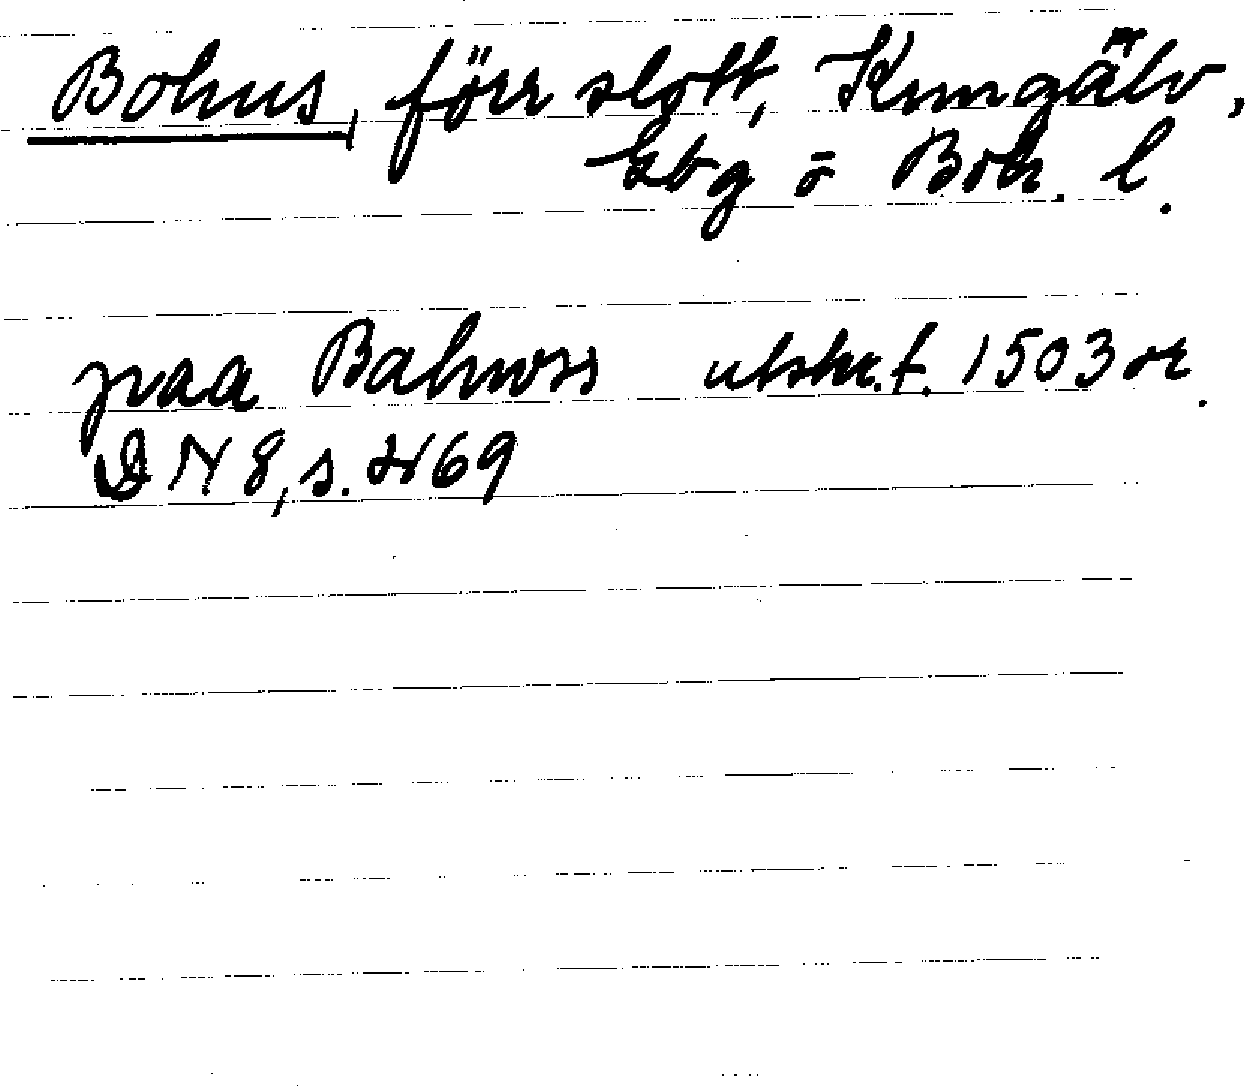 Bohus, förr slott, Kungälv,
Gbg o Boh. l.
paa Bahwss utskr. f. 1503 or.
DN 8, s. 469